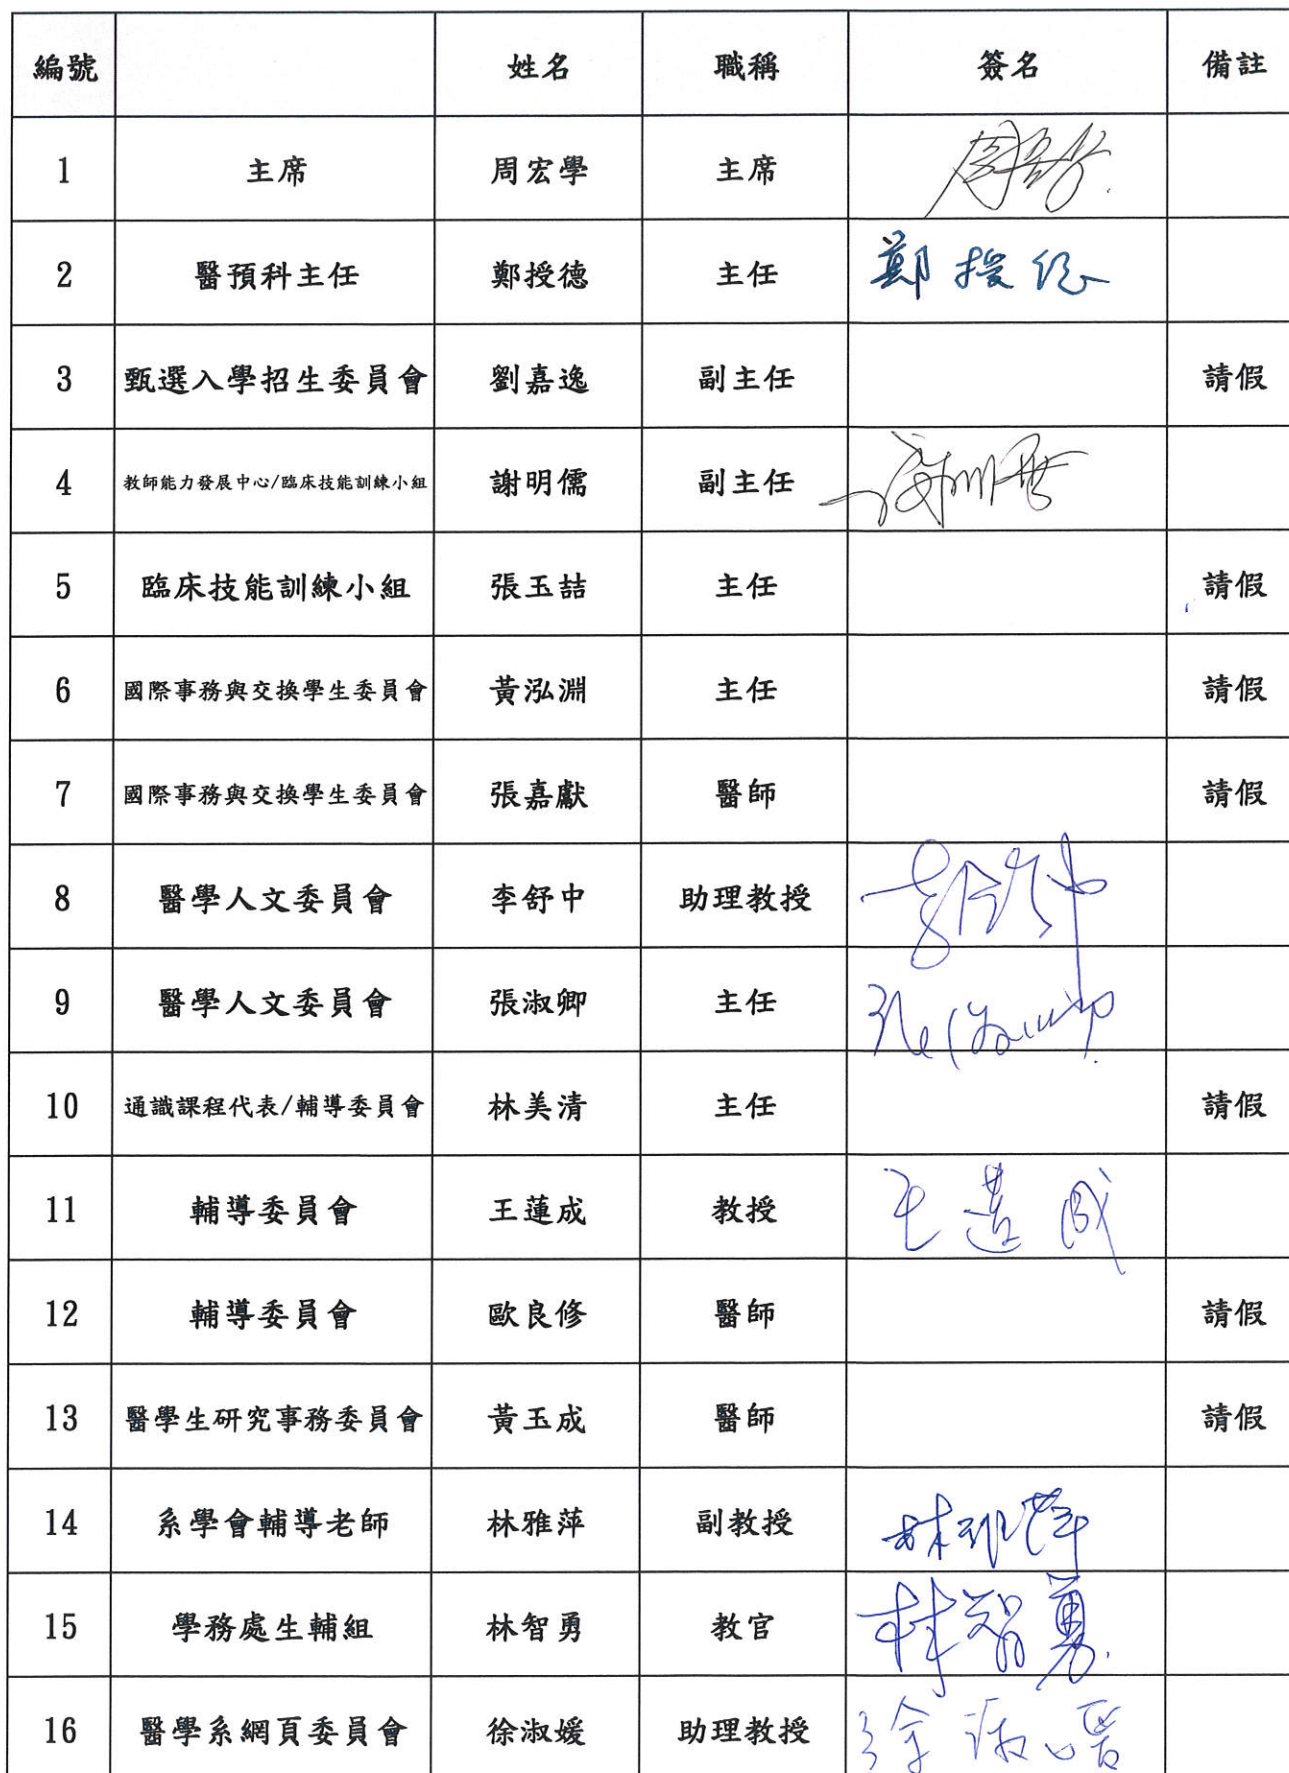 編號 姓名 職稱 簽名 備註
1 主席 周宏學 主席
2 醫預科主任 鄭授德 主任 鄭授德
3 甄選入學招生委員會 劉嘉逸 副主任 請假
4 教師能力發展中心/臨床技能訓練小組 謝明儒 副主任
5 臨床技能訓練小組 張玉喆 主任 請假
6 國際事務與交換學生委員會 黃泓淵 主任 請假
7 國際事務與交換學生委員會 張嘉獻 醫師 請假
8 醫學人文委員會 李舒中 助理教授
9 醫學人文委員會 張淑卿 主任
10 通識課程代表/輔導委員會 林美清 主任 請假
11 輔導委員會 王蓮成 教授 王蓮成
12 輔導委員會 歐良修 醫師 請假
13 醫學生研究事務委員會 黃玉成 醫師 請假
14 系學會輔導老師 林雅萍 副教授 林雅萍
15 學務處生輔組 林智勇 教官 林智勇
16 醫學系網頁委員會 徐淑媛 助理教授